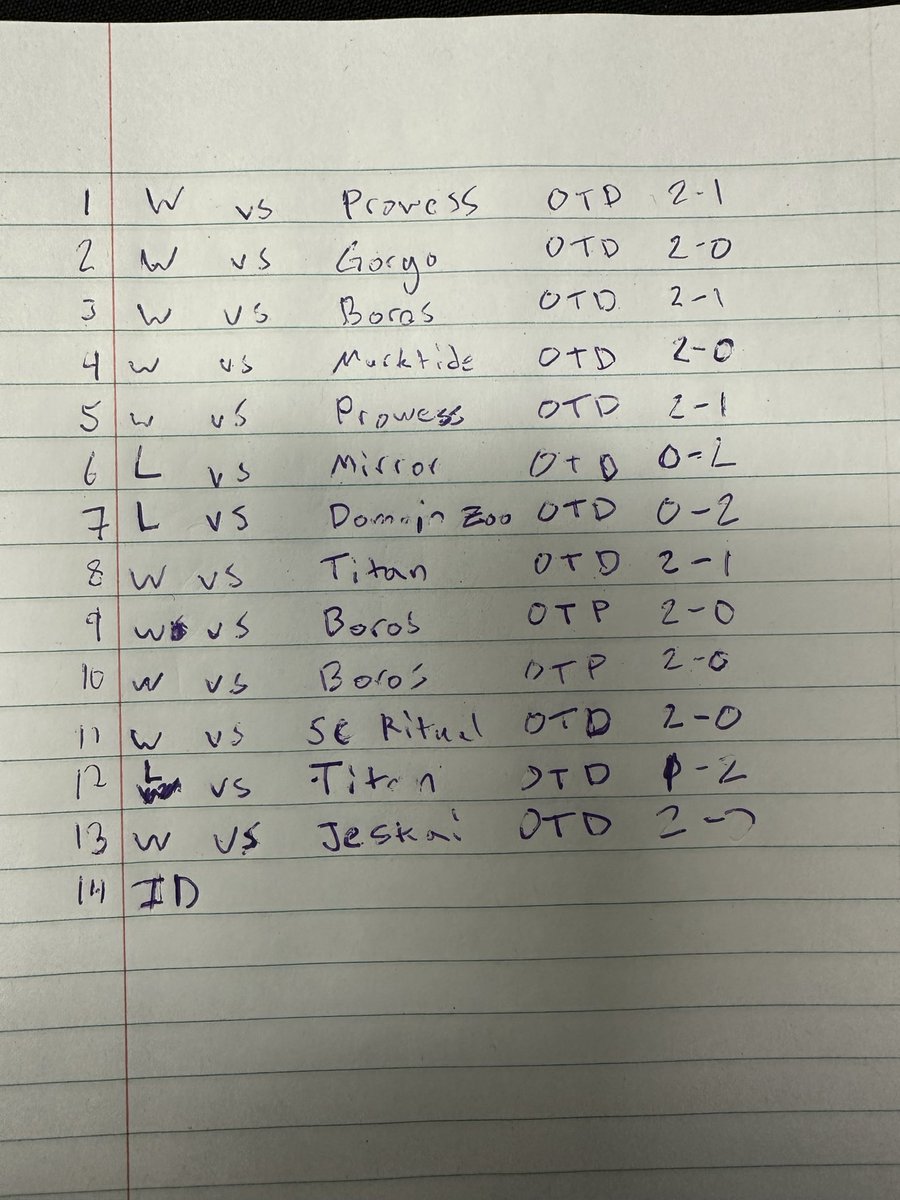 1 W vs Prowess OTD 2-1
2 W vs Goryo OTD 2-0
3 W vs Boros OTD 2-1
4 W vs Murktide OTD 2-0
5 W vs Prowess OTD 2-1
6 L vs Mirror OTD 0-2
7 L vs Domain Zoo OTD 0-2
8 W vs Titan OTD 2-1
9 W vs Boros OTP 2-0
10 W vs Boros OTP 2-0
11 W vs Ritual OTD 2-0
12 L vs Titan OTD 1-2
13 W vs Jeskai OTD 2-0
14 ID